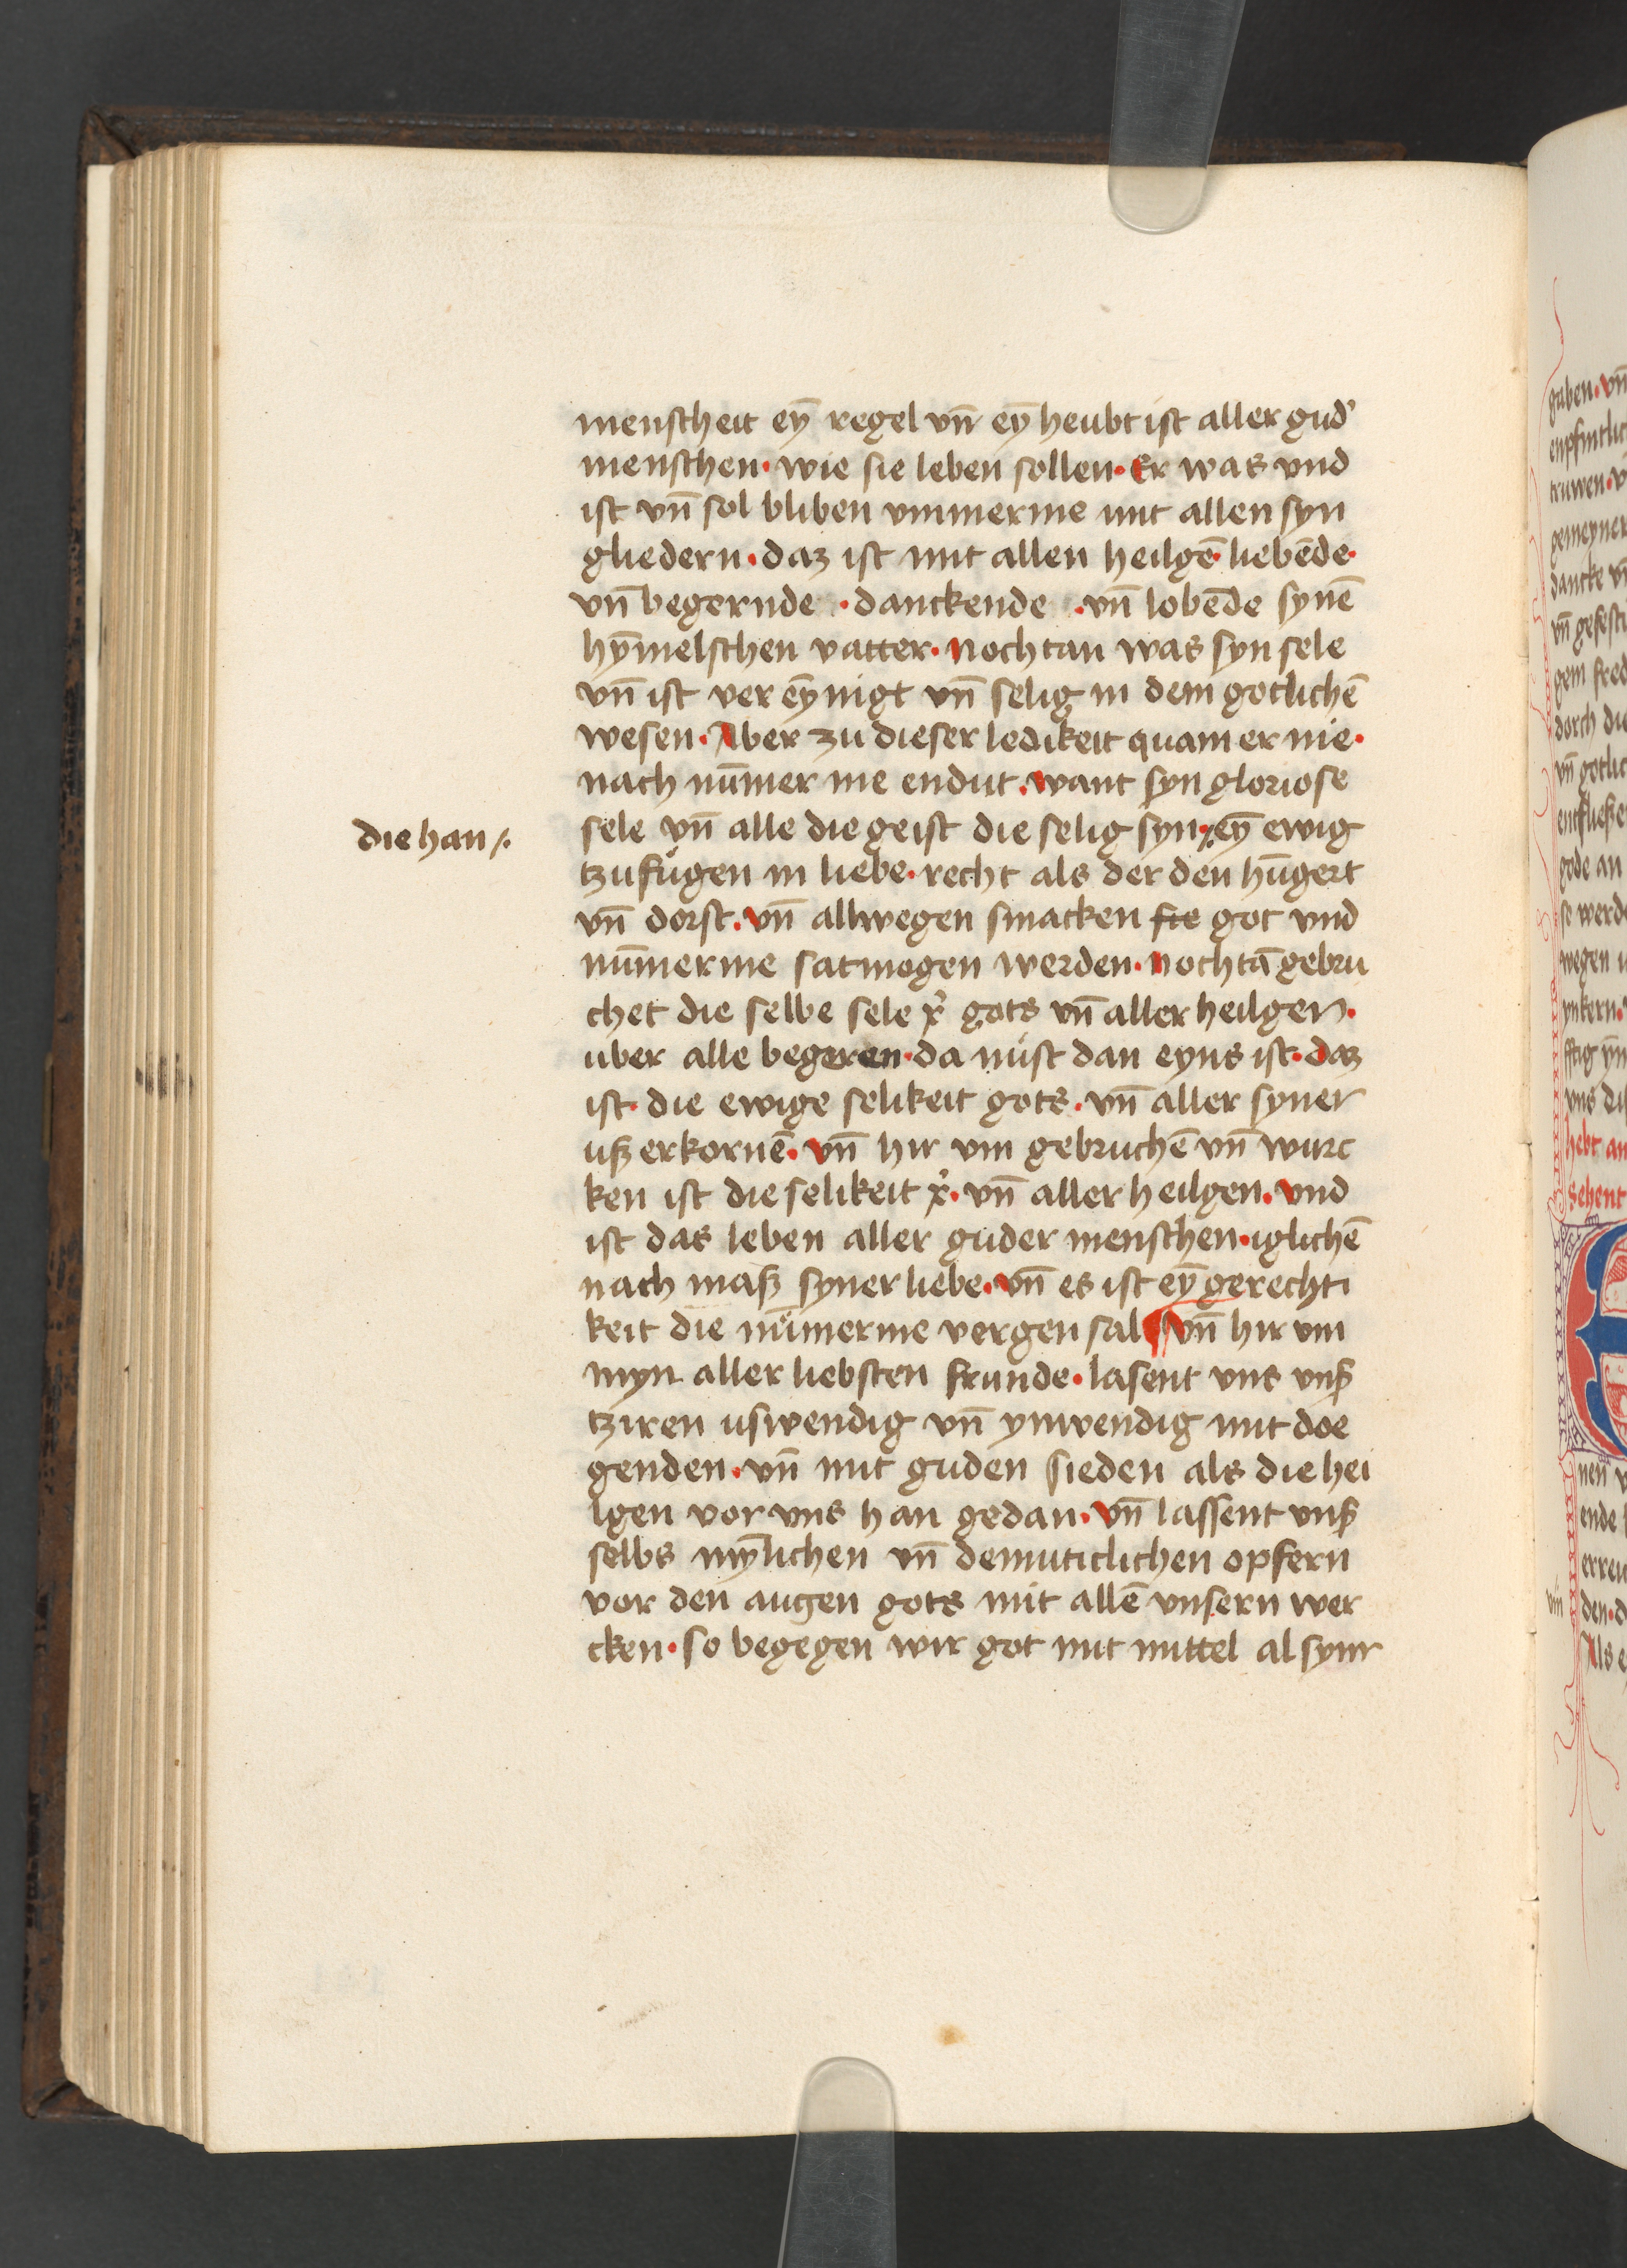 menscheit ey̅ regel vn̅ ey̅ heubt ist aller gud'
menschen · wie sie leben sollen · Er was vnd
ist vn̅ sol bliben vmmerme mit allen syn
gliedern · daz ist mit allen heilge̅ · liebe̅de ·
vn̅ begernde · danckende · vn̅ lobe̅de syne̅
hy̅melschen vatter · Nochtan was syn sele
vn̅ ist ver ey̅nigt vn̅ selig in dem gotliche̅
wesen · Aber zu dieser ledikeit quam er nie ·
nach nu̅mer me endut · want syn gloriose
die han /·
sele vn̅ alle die geist die selig syn · ey̅ ewig
tzufugen in liebe · recht als der den hu̅gert
vn̅ dorst · vn̅ allwegen smacken sie got vnd
nu̅merme sat mogen werden · Nochta̅ gebru
chet die selbe sele x' gots vn̅ aller heilgen ·
uber alle begeren · da nust dan eyns ist · daz
ist · die ewige selikeit gots · vn̅ aller syner
uszerkorne̅ · vn̅ hir vm gebruche̅ vn̅ wurc
ken ist die selikeit x' · vn̅ aller heilgen · vnd
ist das leben aller guder menschen · igliche̅
nach masz syner liebe · vn̅ es ist ey̅ gerechti
keit die nu̅merme vergen sal ¶ vn̅ hir vm
myn aller liebsten frunde · lasent vns vnsz
tziren uswendig vn̅ ynwendig mit doe
genden · vn̅ mit guden sieden als die hei
lgen vor vns han gedan · vn̅ lassent vnsz
selbs my̅lichen vn̅ demuticlichen opfern
vor den augen gots mit alle̅ vnsern wer
cken · so begegen wir got mit mittel al synr
gaben · vn̅
truwen · v
gemeyner
dancke vn̅
vn̅ gefesti
gem fred
dorch die
vn̅ gotlic
entfliesze
gode an
se werde
wegen u
ynkern ·
vns di
hebt an
Sehent
E
nen v
ende
erren
vn̅
den · d
Als e